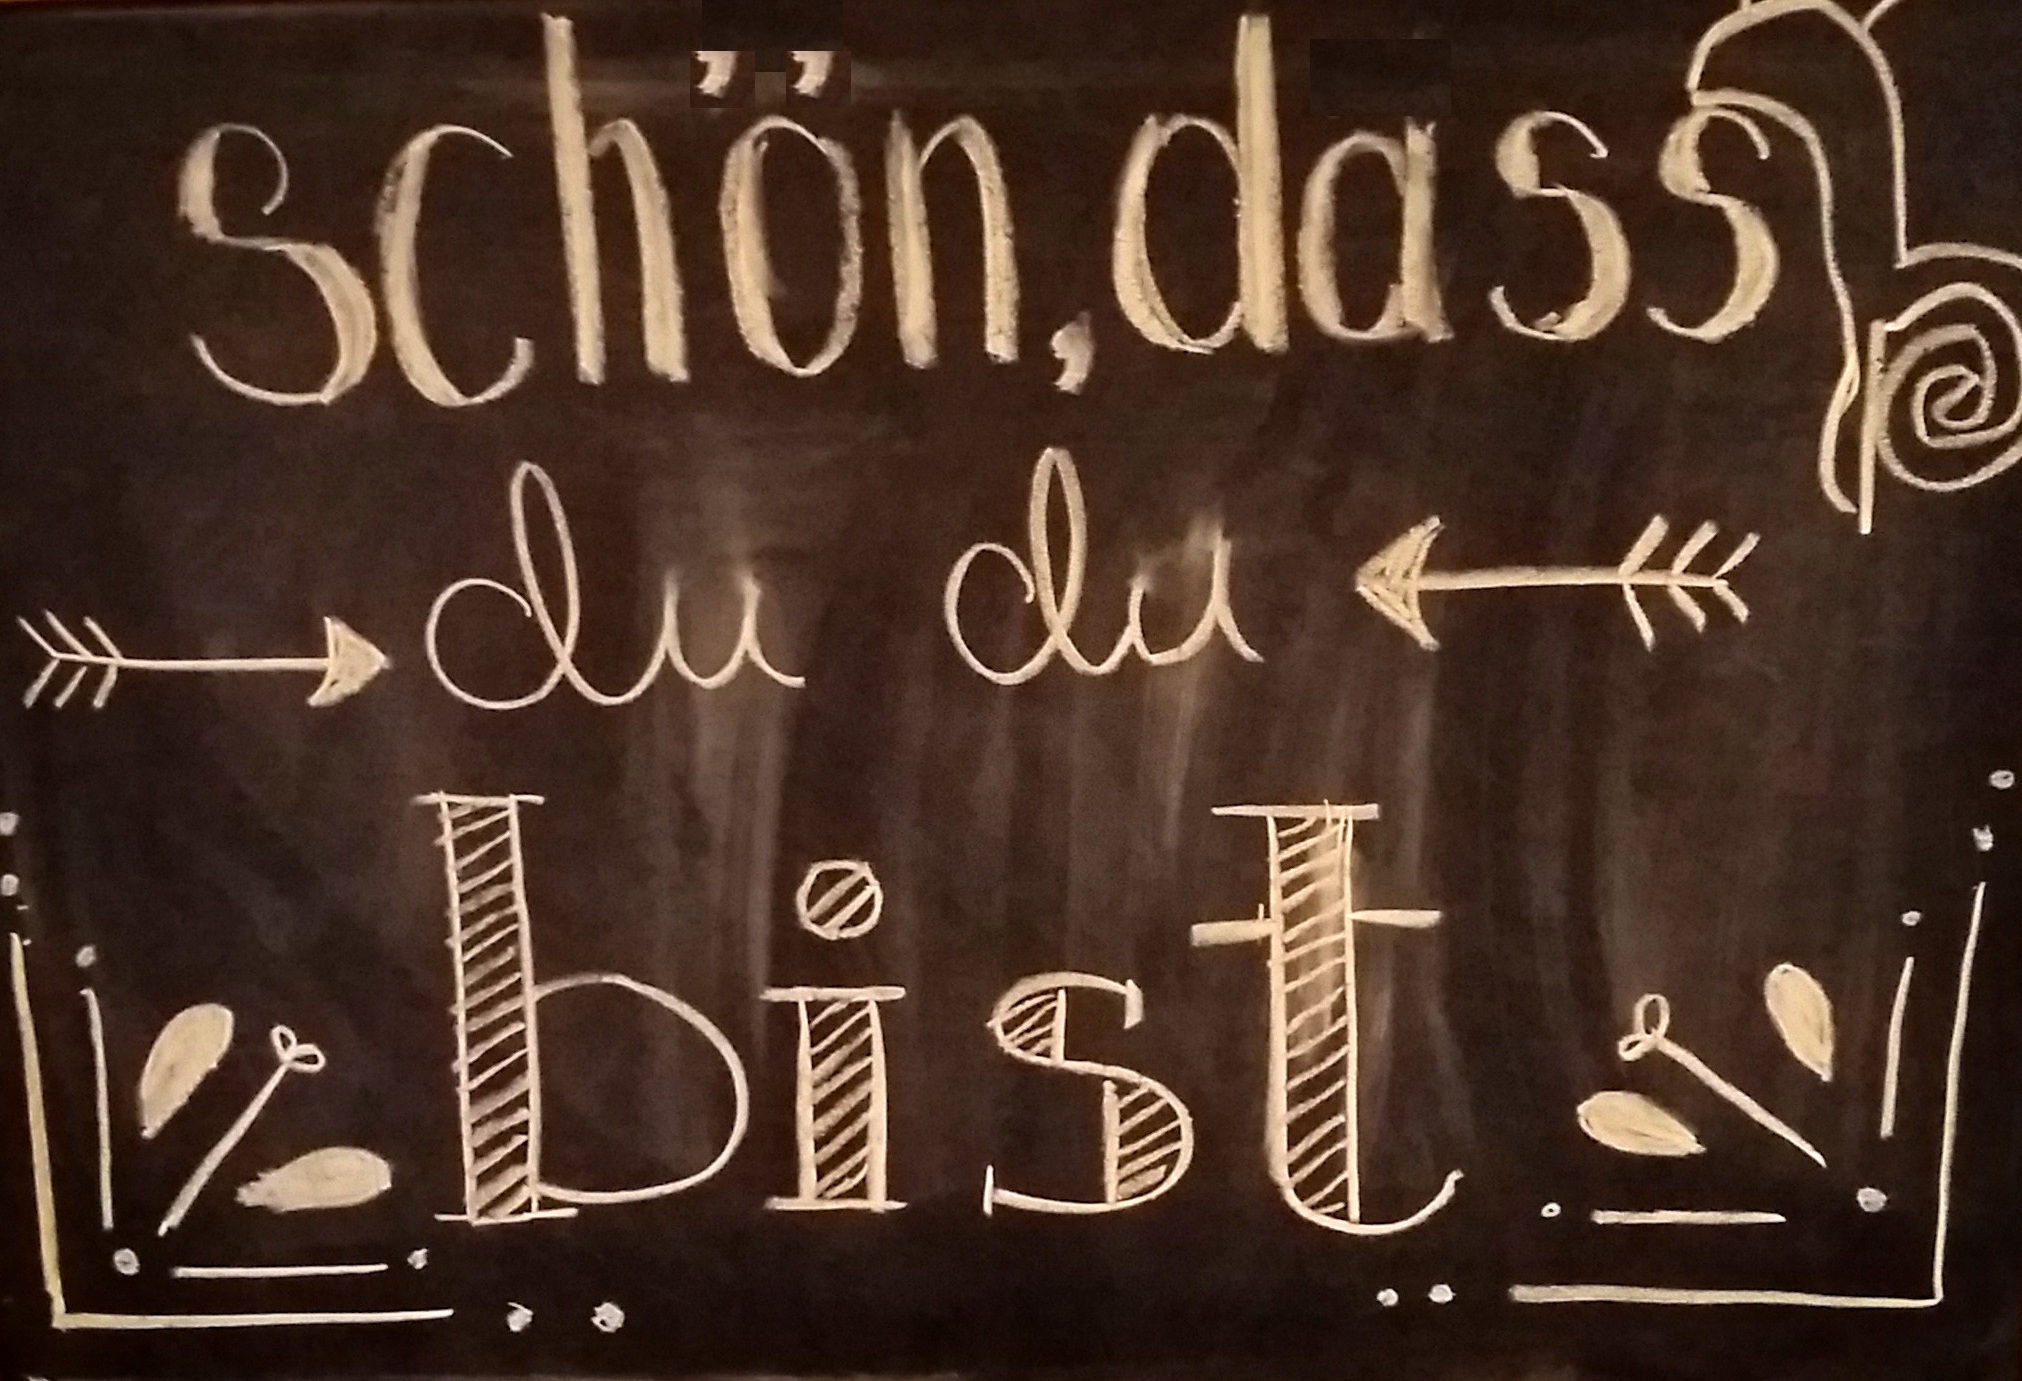 schön, dass
du da
bist